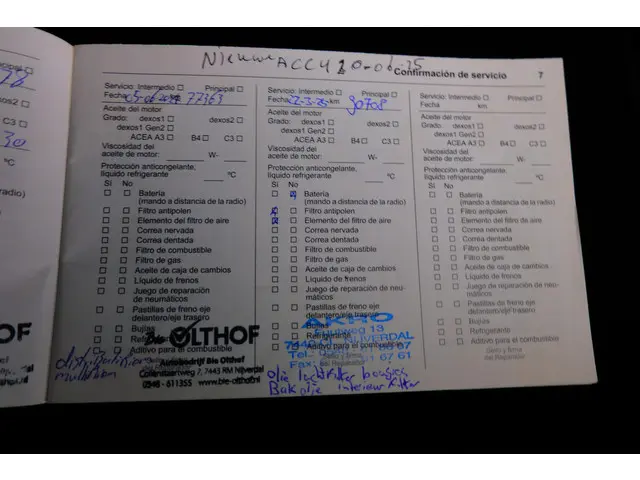 Nieuwe ACCU 20-06-25
Confirmación de servicio 7
Servicio: Intermedio □ Principal □
Fecha 77363
Aceite del motor
Grado: dexos1 □ dexos2 □
dexos1 Gen2 □
ACEA A3 □ B4 □ C3 □
Viscosidad del
aceite de motor: W-
Protección anticongelante,
líquido refrigerante °C
Sí No
□ □ Batería
(mando a distancia de la radio)
□ □ Filtro antipolen
□ □ Elemento del filtro de aire
□ □ Correa nervada
□ □ Correa dentada
□ □ Filtro de combustible
□ □ Filtro de gas
□ □ Aceite de caja de cambios
□ □ Líquido de frenos
□ □ Juego de reparación
de neumáticos
□ □ Pastillas de freno eje
delantero/eje trasero
□ □ Bujías
□ □ Aditivo para el combustible
OLTHOF
Autobedrijf Bte Olthof
Collenstaertweg 7, 7443 RM Nijverdal
0548 - 611355 www.bte-olthof.nl
Servicio: Intermedio □ Principal □
Fecha 22-3-25 km 90708
Aceite del motor
Grado: dexos1 □ dexos2 □
dexos1 Gen2 □
ACEA A3 □ B4 □ C3 □
Viscosidad del
aceite de motor: W-
Protección anticongelante,
líquido refrigerante °C
Sí No
□ Batería
(mando a distancia de la radio)
□ Filtro antipolen
□ Elemento del filtro de aire
□ □ Correa nervada
□ □ Correa dentada
□ □ Filtro de combustible
□ □ Filtro de gas
□ □ Aceite de caja de cambios
□ □ Líquido de frenos
□ □ Juego de reparación de neu-
máticos
□ □ Pastillas de freno eje
delantero/eje trasero
□ □ Bujías
□ □ Refrigerante
□ □ Aditivo para el combustible
AKHO
13
NIJVERDAL
Tel.
Fax: 61 67 61
olie luchtfilter bougies
Bak olie interieur filter
Servicio: Intermedio □ Principal □
Fecha km
Aceite del motor
Grado: dexos1 □ dexos2 □
dexos1 Gen2 □
ACEA A3 □ B4 □ C3 □
Viscosidad del
aceite de motor: W-
Protección anticongelante,
líquido refrigerante °C
Sí No
□ □ Batería
(mando a distancia de la radio)
□ □ Filtro antipolen
□ □ Elemento del filtro de aire
□ □ Correa nervada
□ □ Correa dentada
□ □ Filtro de combustible
□ □ Filtro de gas
□ □ Aceite de caja de cambios
□ □ Líquido de frenos
□ □ Juego de reparación de neu-
máticos
□ □ Pastillas de freno eje
delantero/eje trasero
□ □ Bujías
□ □ Refrigerante
□ □ Aditivo para el combustible
Sello y firma
del Reparador